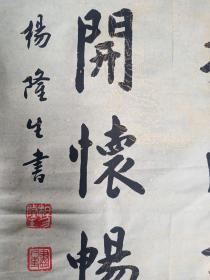 開懷暢
楊隆生書